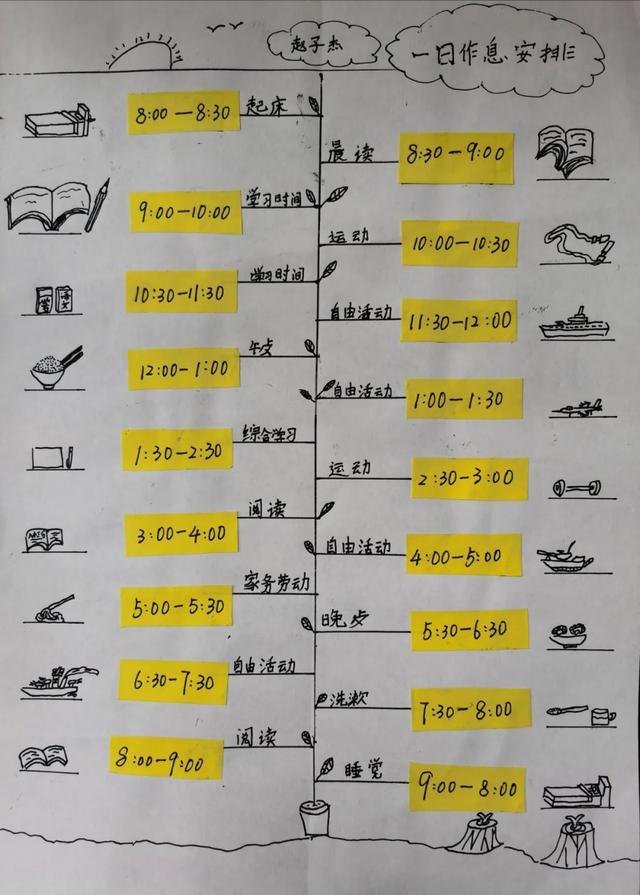 赵子杰
一日作息安排
8:00—8:30 起床
晨读 8:30—9:00
9:00—10:00 学习时间
运动 10:00—10:30
10:30—11:30 学习时间
自由活动 11:30—12:00
12:00—1:00 午饭
自由活动 1:00—1:30
1:30—2:30 综合学习
运动 2:30—3:00
3:00—4:00 阅读
自由活动 4:00—5:00
5:00—5:30 家务劳动
晚饭 5:30—6:30
6:30—7:30 自由活动
洗漱 7:30—8:00
8:00—9:00 阅读
睡觉 9:00—8:00